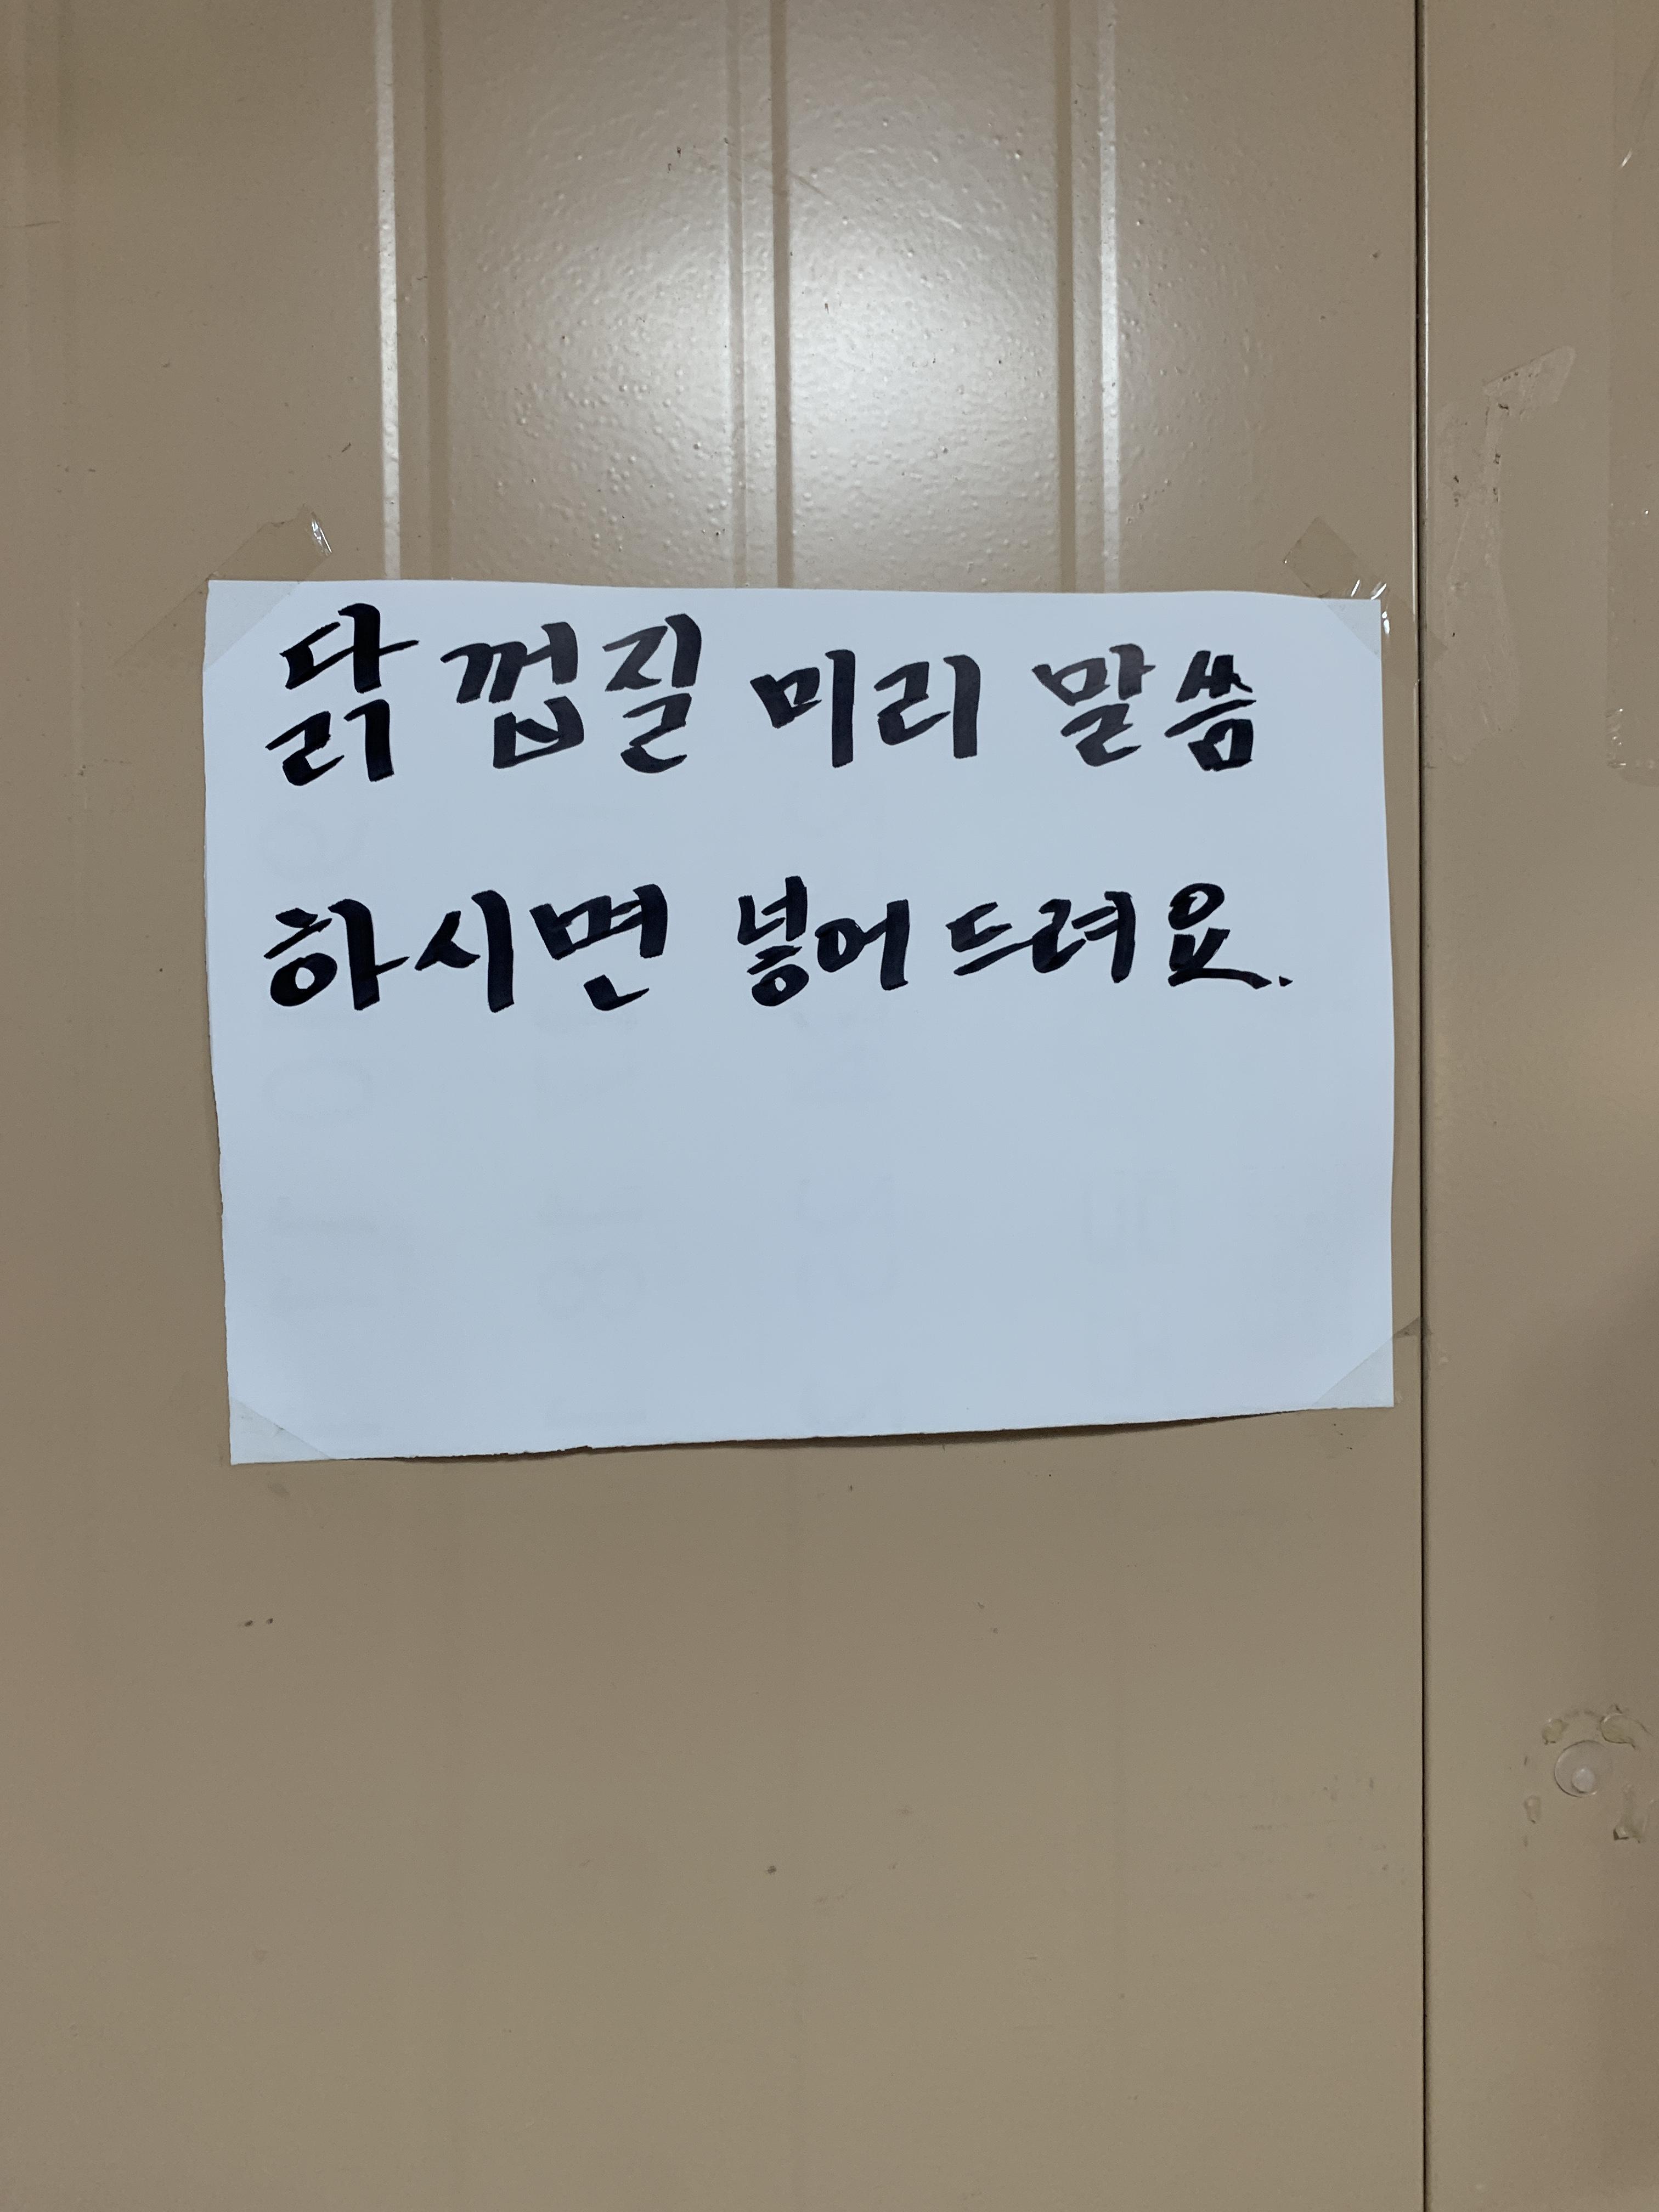 닭 껍질 미리 말씀
하시면 넣어 드려요.